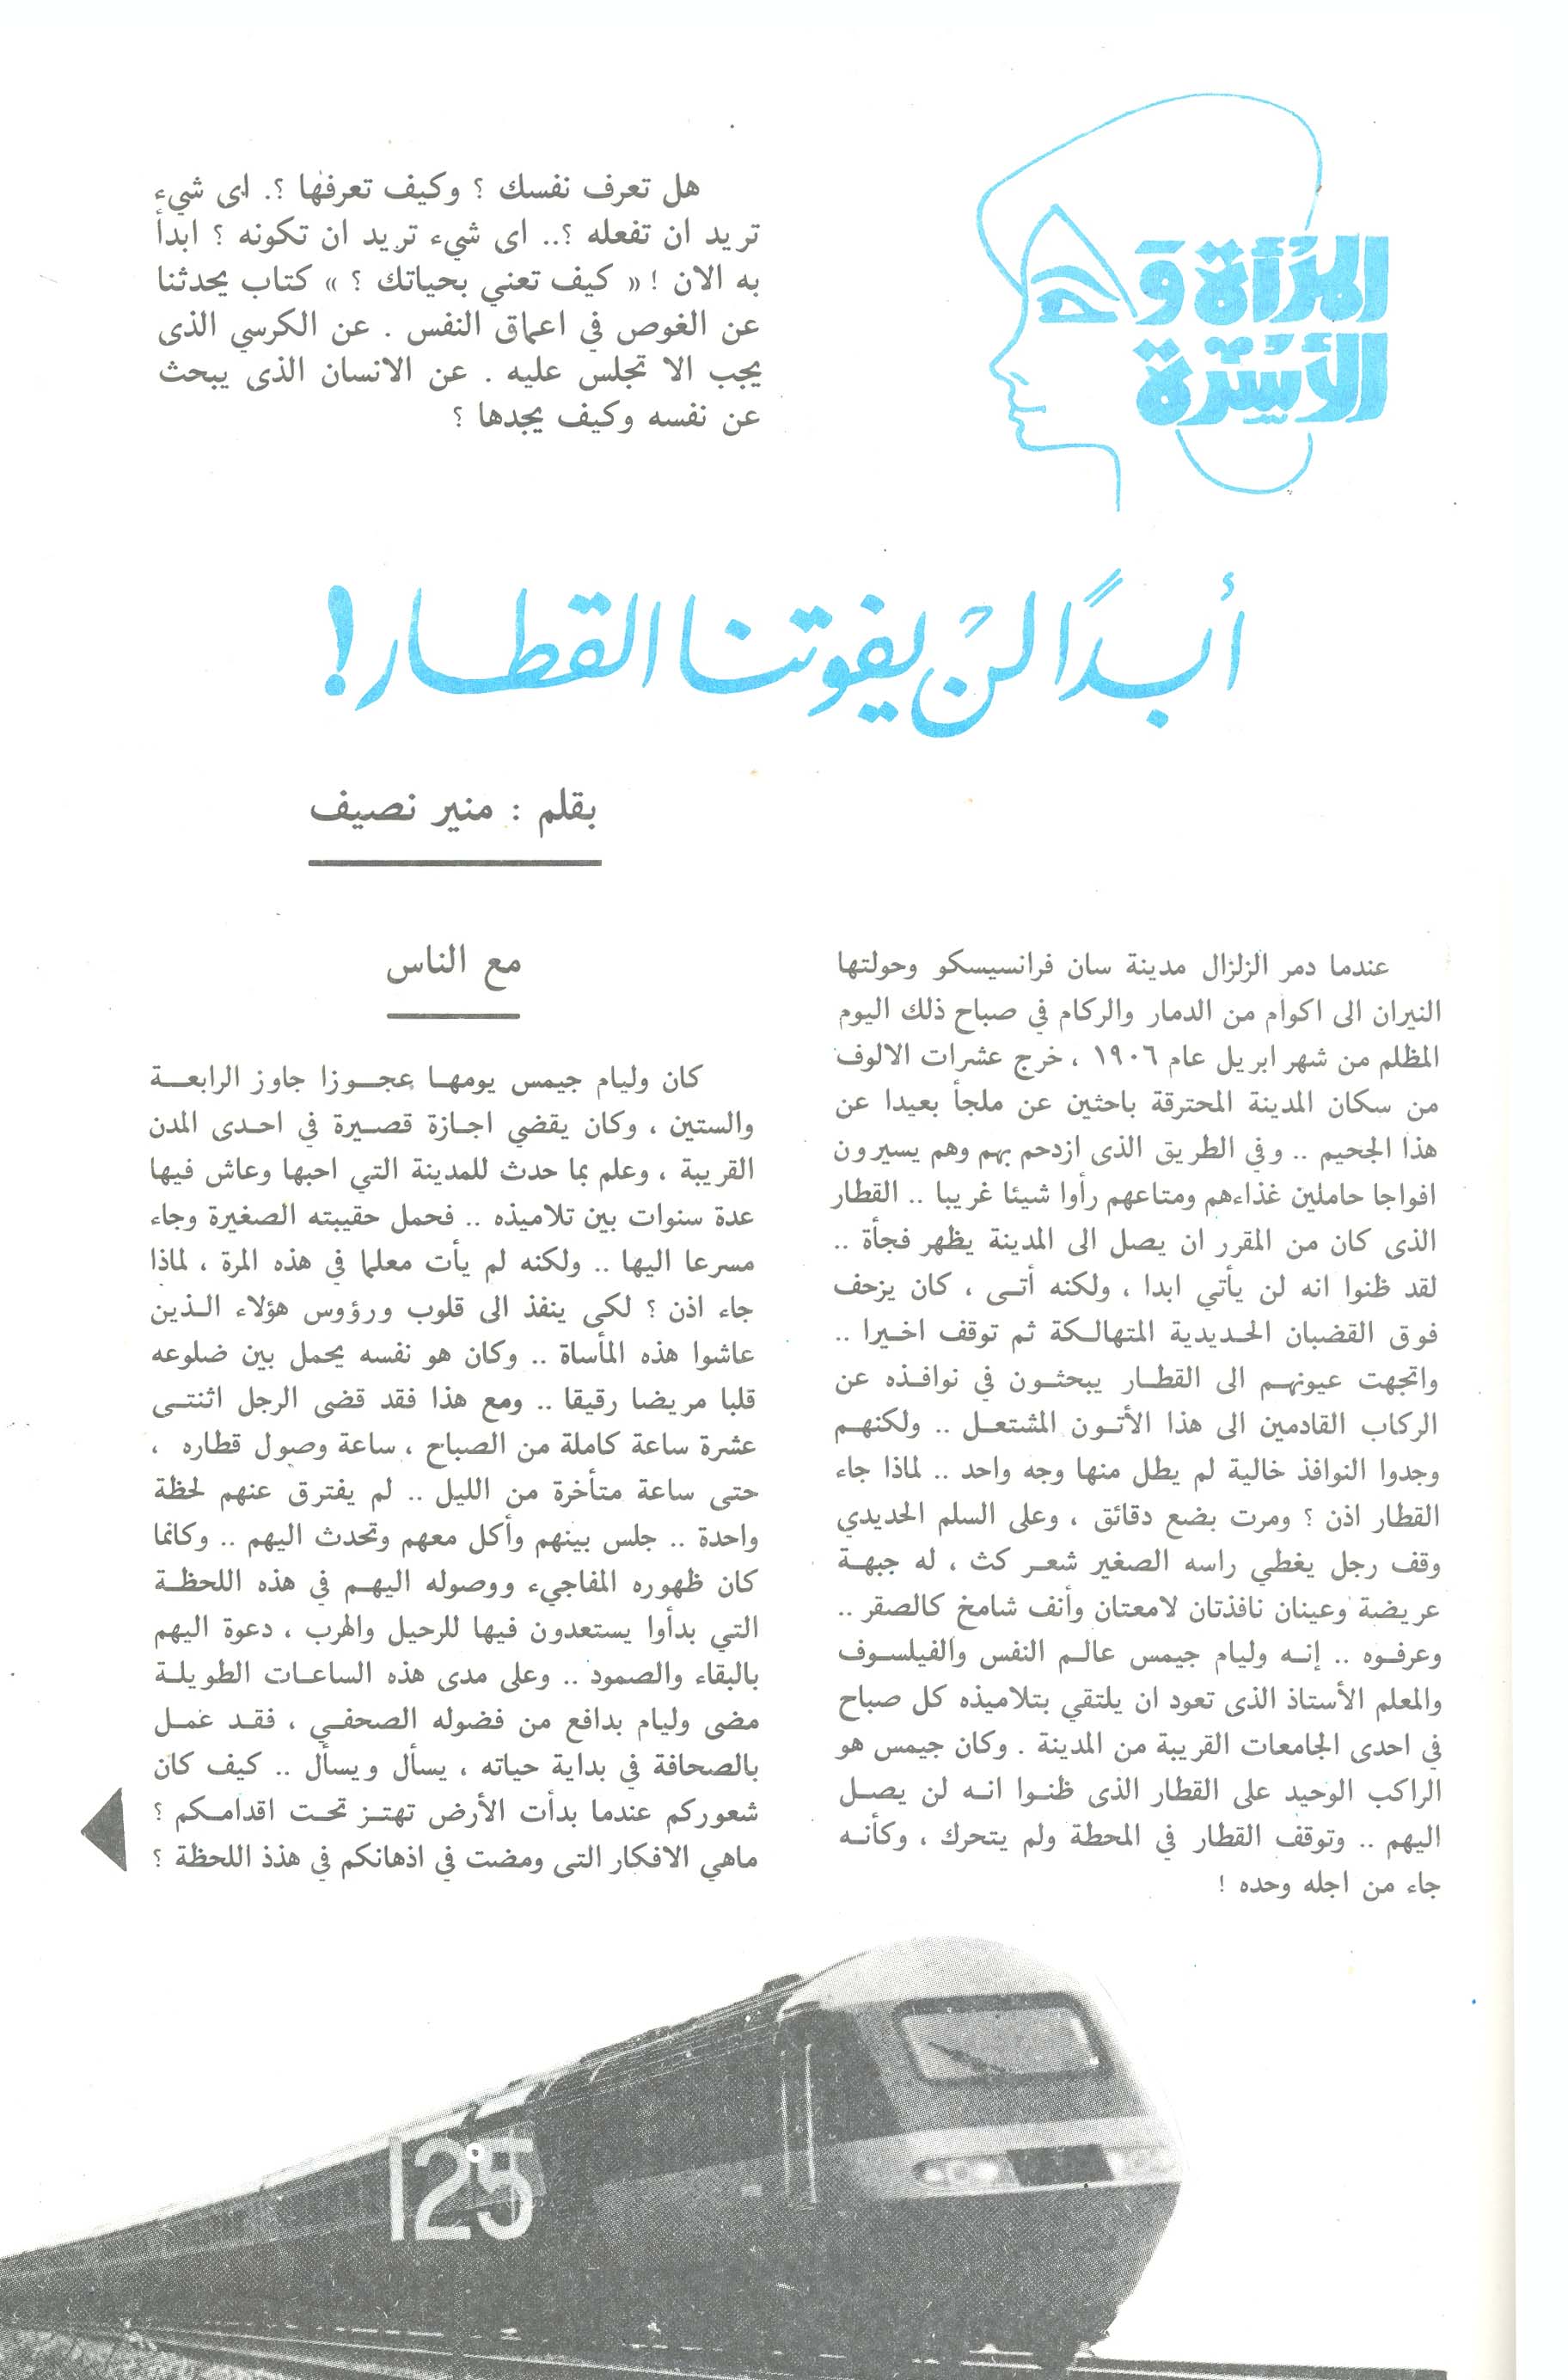 المرأة و
الأسرة
هل تعرف نفسك ؟ وكيف تعرفها ؟. اى شيء
تريد ان تفعله ؟.. اى شيء تريد ان تكونه ؟ ابدأ
به الان ! « كيف تعني بحياتك ؟ » كتاب يحدثنا
عن الغوص في اعماق النفس . عن الكرسي الذى
يجب الا تجلس عليه . عن الانسان الذى يبحث
عن نفسه وكيف يجدها ؟
أبدًا لن يفوتنا القطار !
بقلم : منير نصيف
عندما دمر الزلزال مدينة سان فرانسيسكو وحولتها
النيران الى اكوام من الدمار والركام في صباح ذلك اليوم
المظلم من شهر ابريل عام ١٩٠٦ ، خرج عشرات الالوف
من سكان المدينة المحترقة باحثين عن ملجأ بعيدا عن
هذا الجحيم .. وفي الطريق الذى ازدحم بهم وهم يسيرون
افواجا حاملين غذاءهم ومتاعهم رأوا شيئا غريبا .. القطار
الذى كان من المقرر ان يصل الى المدينة يظهر فجأة ..
لقد ظنوا انه لن يأتي ابدا ، ولكنه أتى ، كان يزحف
فوق القضبان الحديدية المتهالكة ثم توقف اخيرا ..
واتجهت عيونهم الى القطار يبحثون في نوافذه عن
الركاب القادمين الى هذا الأتون المشتعل .. ولكنهم
وجدوا النوافذ خالية لم يطل منها وجه واحد .. لماذا جاء
القطار اذن ؟ ومرت بضع دقائق ، وعلى السلم الحديدي
وقف رجل يغطي راسه الصغير شعر كث ، له جبهة
عريضة وعينان نافذتان لامعتان وأنف شامخ كالصقر ..
وعرفوه .. إنه وليام جيمس عالم النفس والفيلسوف
والمعلم الأستاذ الذى تعود ان يلتقي بتلاميذه كل صباح
في احدى الجامعات القريبة من المدينة . وكان جيمس هو
الراكب الوحيد على القطار الذى ظنوا انه لن يصل
اليهم .. وتوقف القطار في المحطة ولم يتحرك ، وكأنه
جاء من اجله وحده !
مع الناس
كان وليام جيمس يومها عجوزا جاوز الرابعة
والستين ، وكان يقضي اجازة قصيرة في احدى المدن
القريبة ، وعلم بما حدث للمدينة التي احبها وعاش فيها
عدة سنوات بين تلاميذه .. فحمل حقيبته الصغيرة وجاء
مسرعا اليها .. ولكنه لم يأت معلما في هذه المرة ، لماذا
جاء اذن ؟ لكى ينفذ الى قلوب ورؤوس هؤلاء الذين
عاشوا هذه المأساة .. وكان هو نفسه يحمل بين ضلوعه
قلبا مريضا رقيقا .. ومع هذا فقد قضى الرجل اثنتى
عشرة ساعة كاملة من الصباح ، ساعة وصول قطاره ،
حتى ساعة متأخرة من الليل .. لم يفترق عنهم لحظة
واحدة .. جلس بينهم وأكل معهم وتحدث اليهم .. وكانما
كان ظهوره المفاجيء ووصوله اليهم في هذه اللحظة
التي بدأوا يستعدون فيها للرحيل والهرب ، دعوة اليهم
بالبقاء والصمود .. وعلى مدى هذه الساعات الطويلة
مضى وليام بدافع من فضوله الصحفي ، فقد عمل
بالصحافة في بداية حياته ، يسأل ويسأل .. كيف كان
شعوركم عندما بدأت الأرض تهتز تحت اقدامكم ؟
ماهي الافكار التى ومضت في اذهانكم في هذذ اللحظة ؟
125